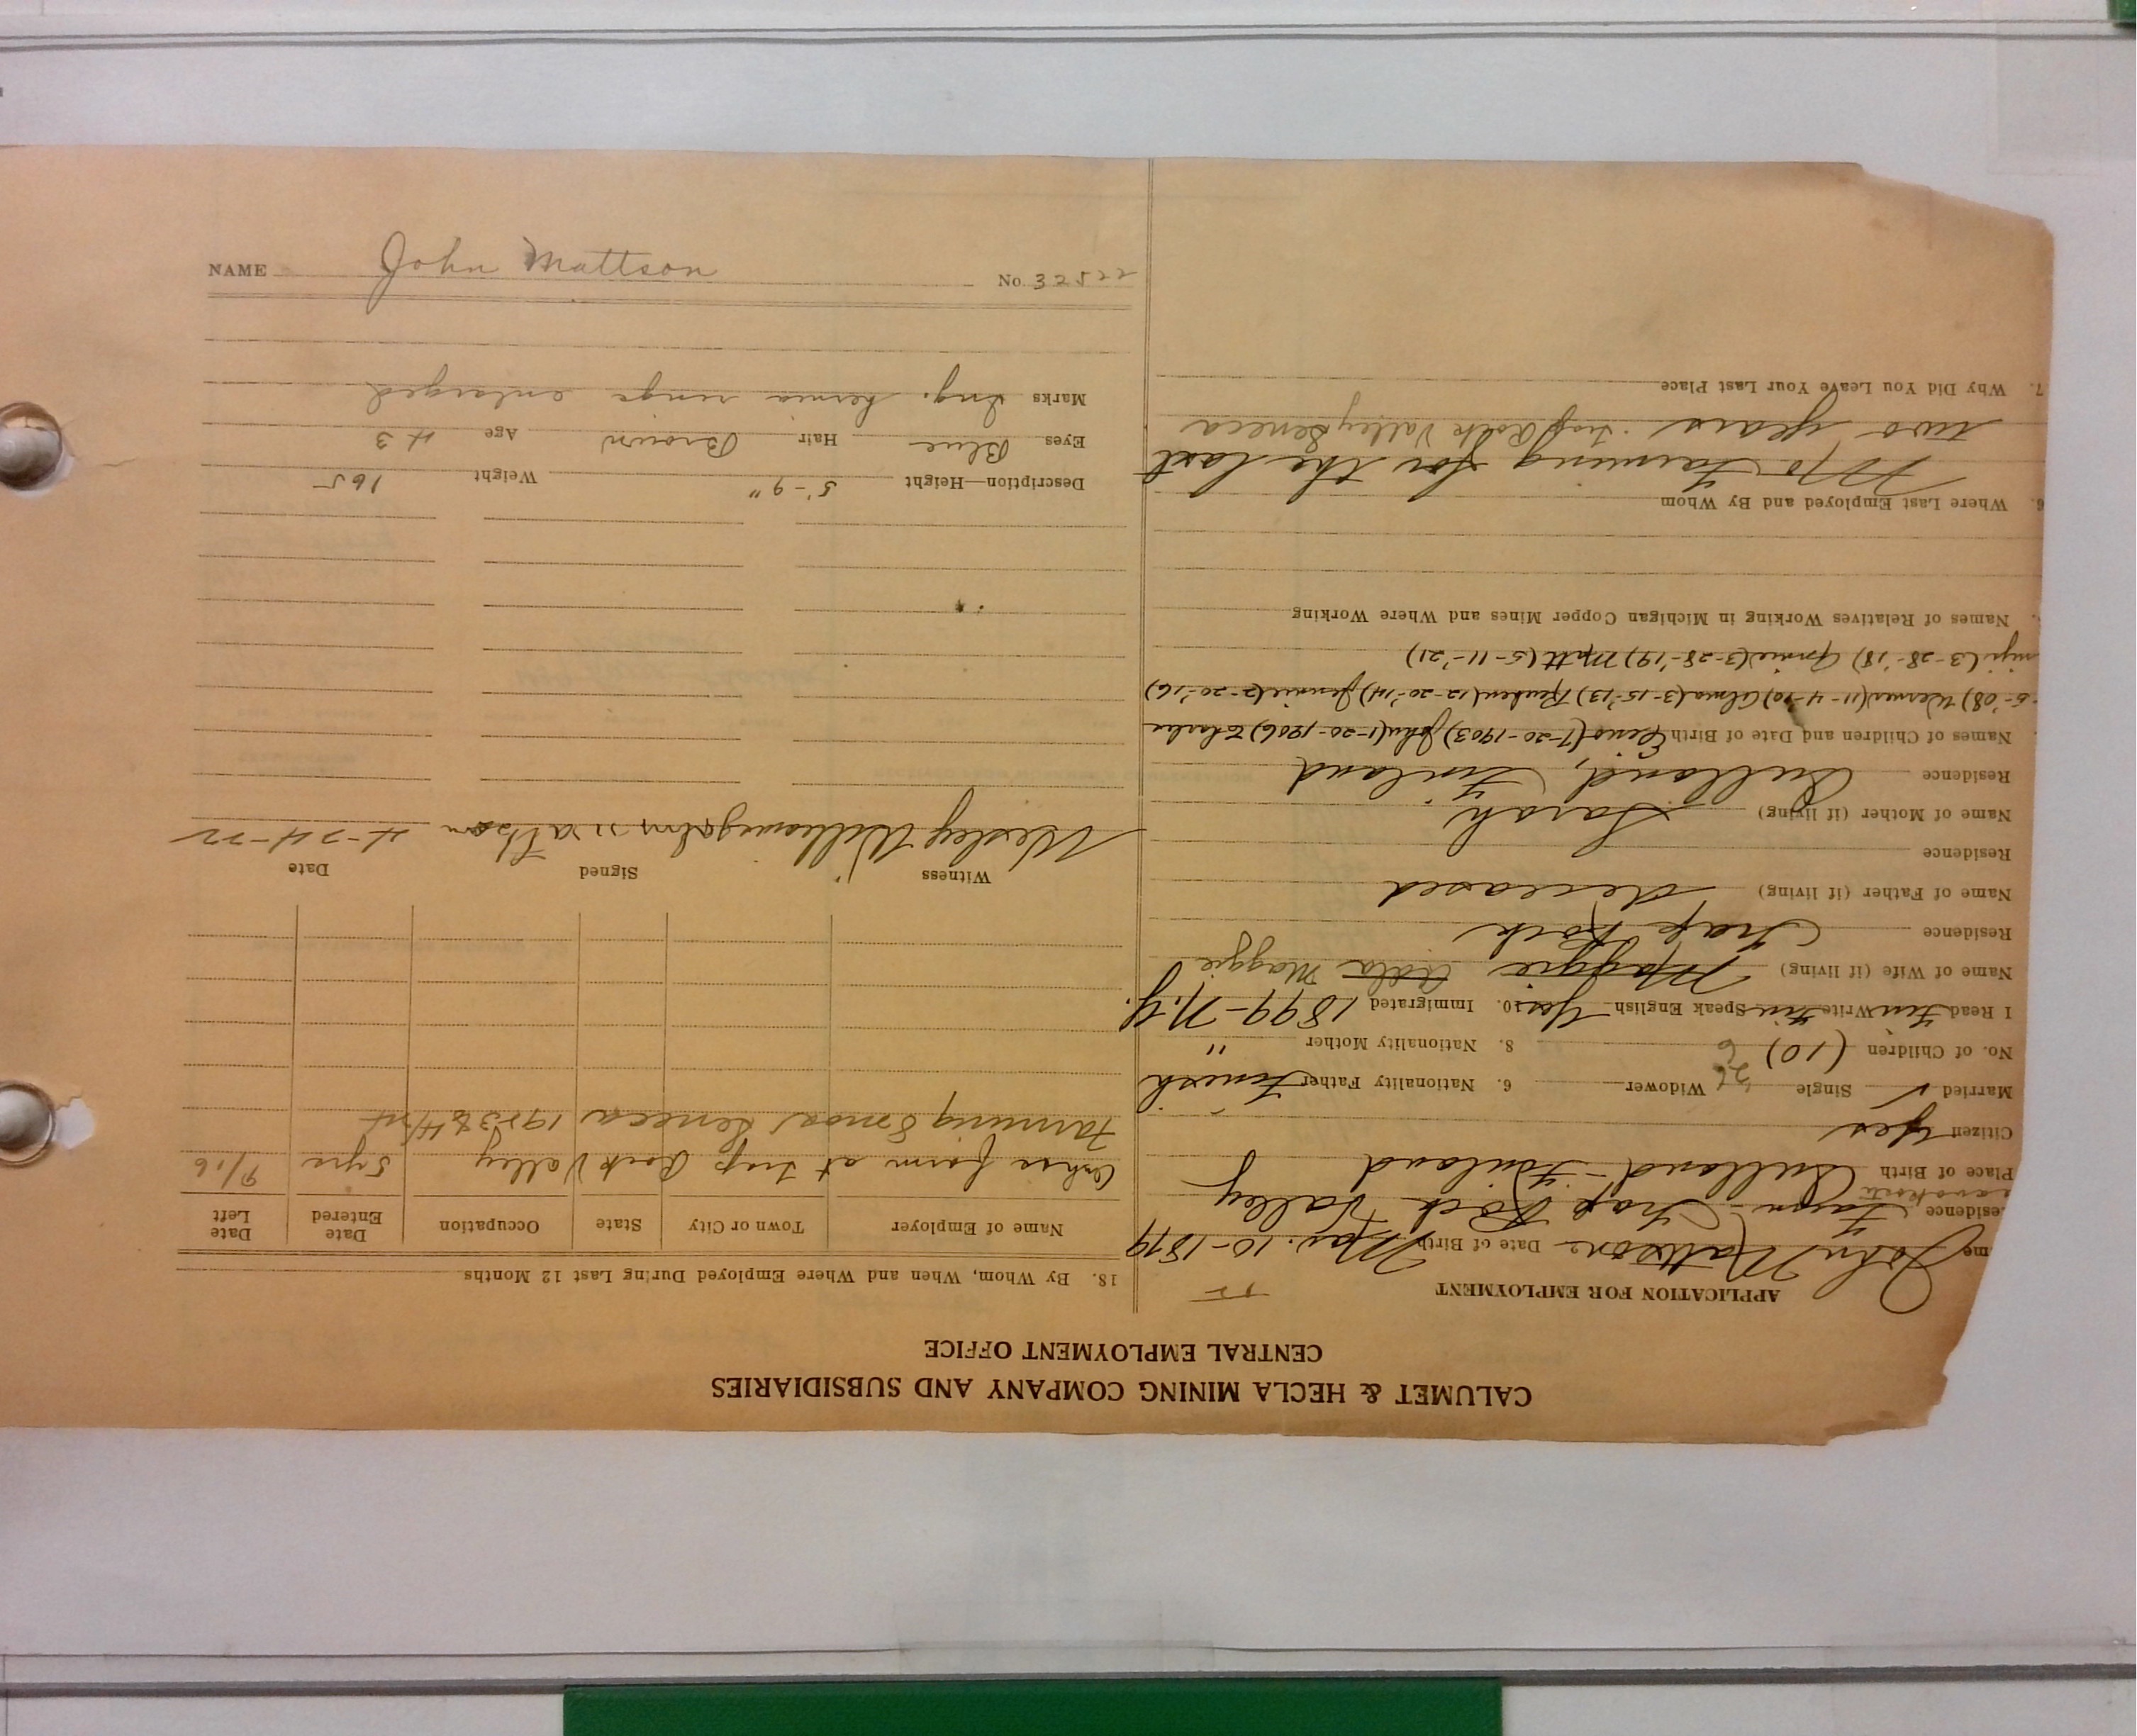 CALUMET & HECLA MINING COMPANY AND SUBSIDIARIES
CENTRAL EMPLOYMENT OFFICE
APPLICATION FOR EMPLOYMENT
me John Mattson Date of Birth Mar. 10-1879
esidence Farm - Trap Rock Valley
Place of Birth Finland
Citizen Yes
Married ✓ Single Widower 6. Nationality Father Finish
No. of Children (10) 6 8. Nationality Mother "
I Read Fin Write Fin Speak English Yes 10. Immigrated 1899-N.Y.
Name of Wife (if living) Maggie Maggie
Residence Trap Rock
Name of Father (if living) deceased
Residence
Name of Mother (if living) Sarah
Residence Finland
Names of Children and Date of Birth (7-20-1903) John (1-20-1906) Charles
-5-'08) (11-4-'10) Alma (3-15-'13) Reuben (12-20-'14) Jennie (2-20-'16)
(3-28-'18) (3-28-'19) Matt (5-11-'21)
Names of Relatives Working in Michigan Copper Mines and Where Working
6. Where Last Employed and By Whom
Farming for the last
two years Trap Rock Valley Seneca
7. Why Did You Leave Your Last Place
18. By Whom, When and Where Employed During Last 12 Months
Name of Employer Town or City State Occupation Date Entered Date Left
farm at Trap Rock Valley 5 yrs 9/16
Farming Seneca
Witness Signed Date
Wesley Williams John Mattson 4-24-22
Description—Height 5'-9" Weight 165
Eyes Blue Hair Brown Age 43
Marks Ing. hernia rings enlarged
NAME John Mattson No. 32522